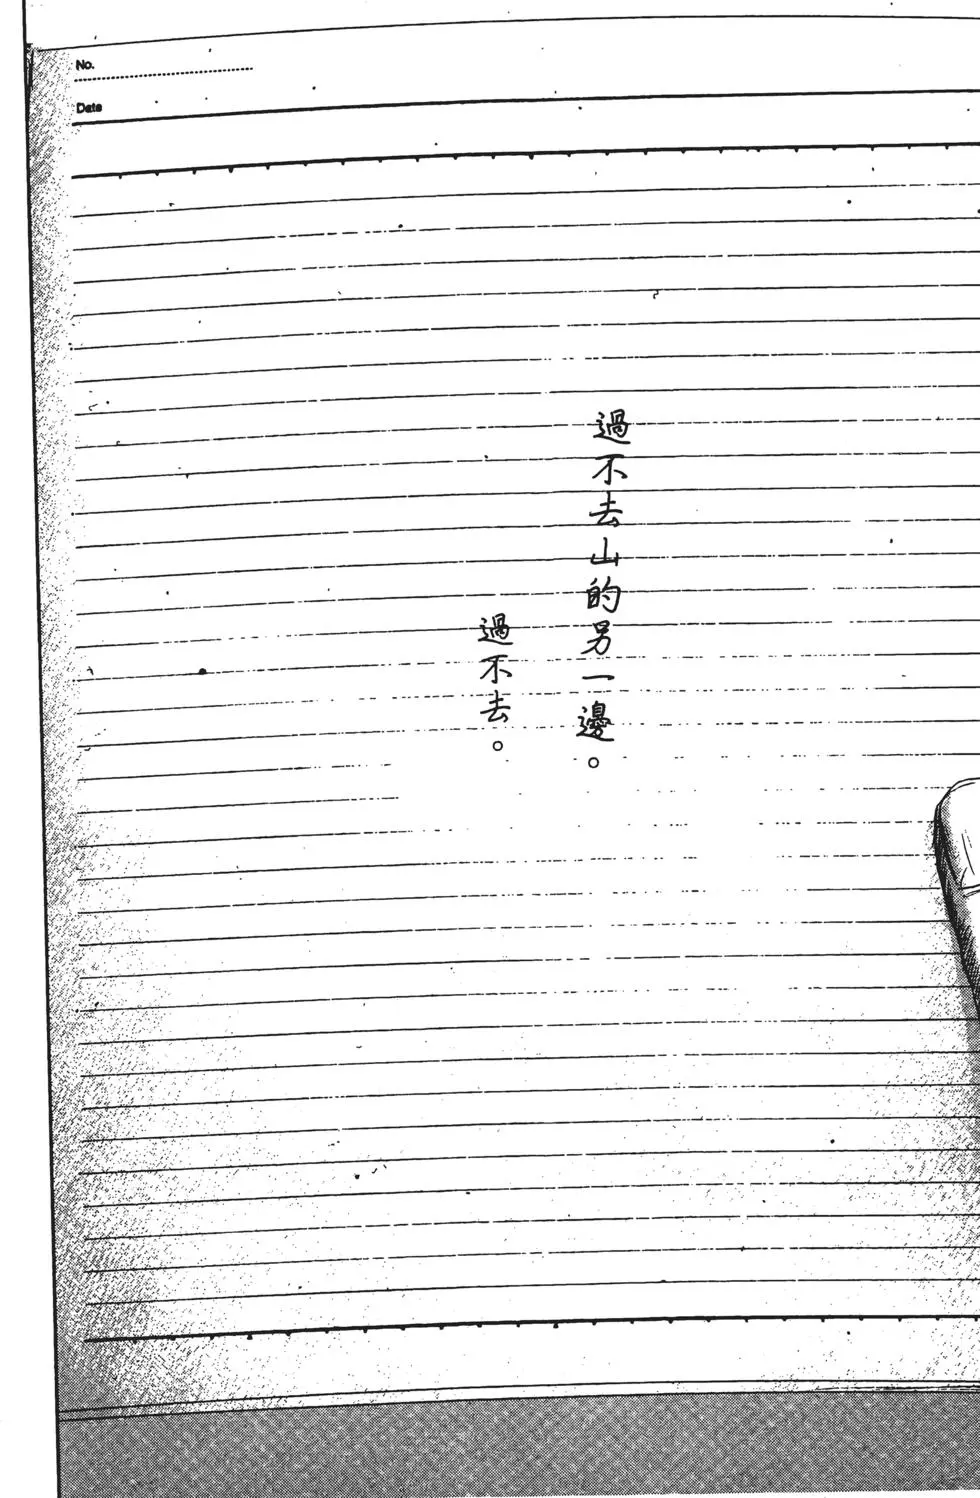 No.
Date
過不去山的另一邊。
過不去。